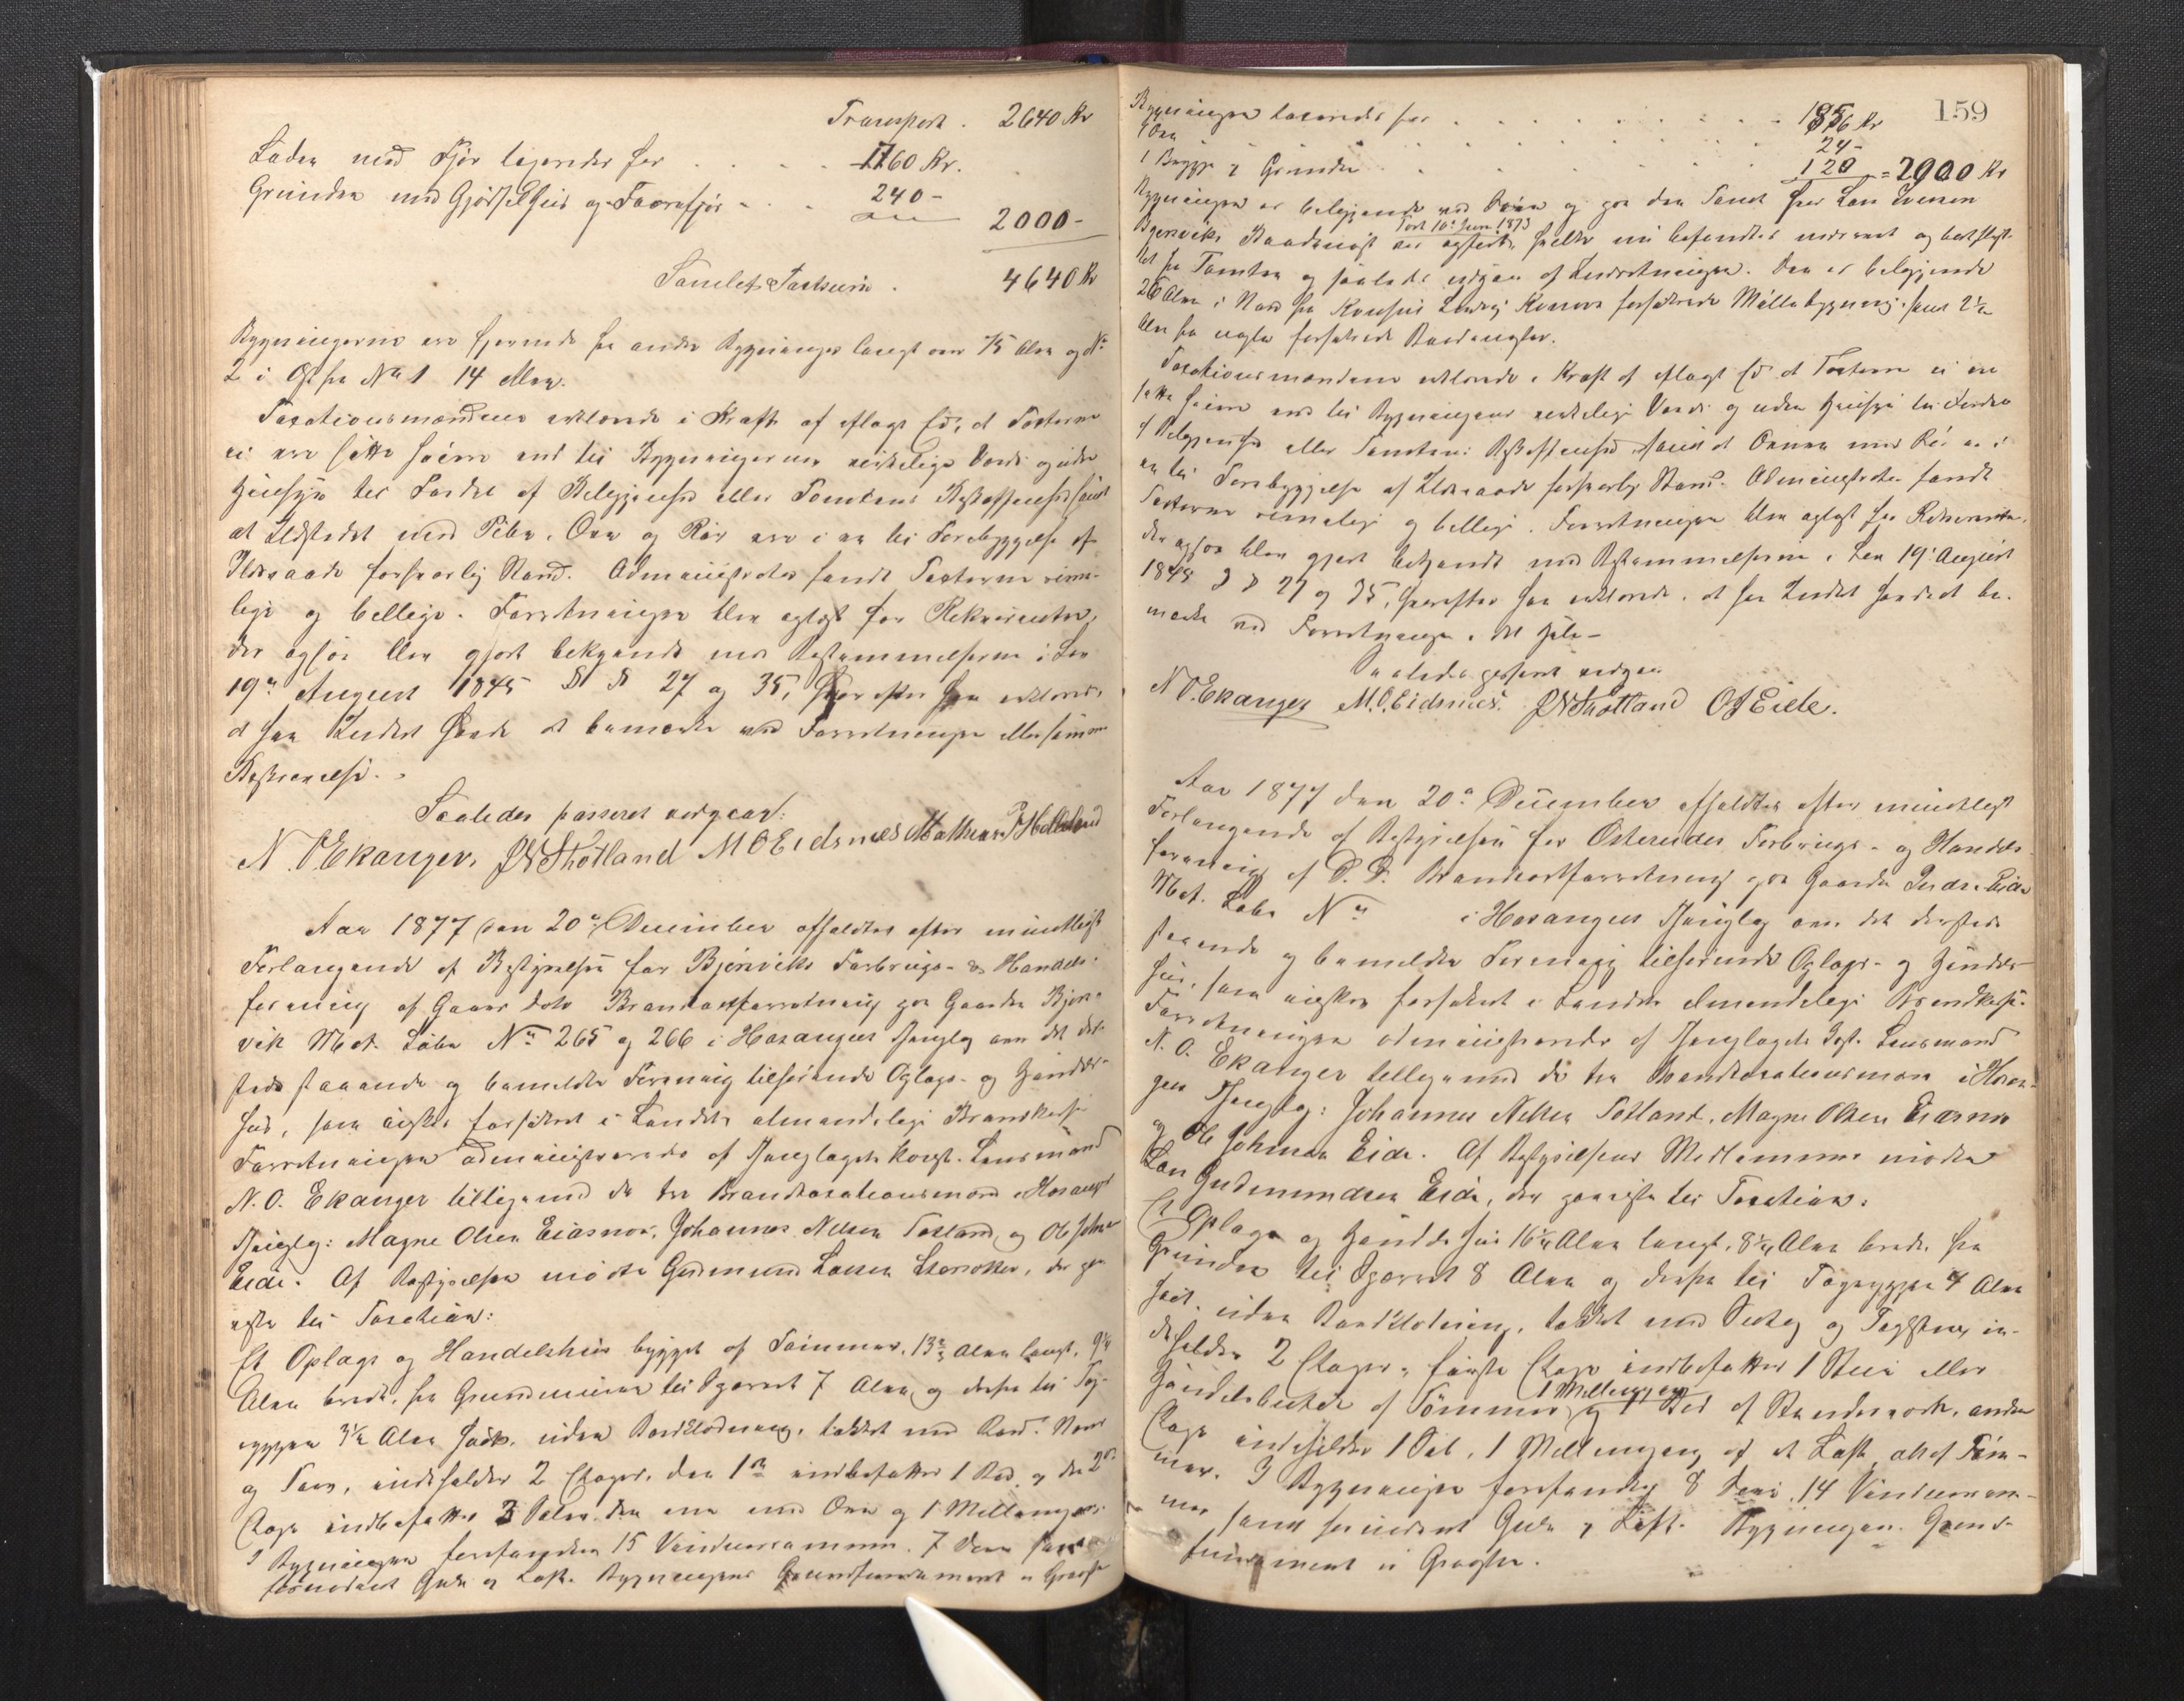 Transport . 2640 Kr
Laden med Fjøs taxeredes for . . . . 1760 Kr.
Grunden med Gjødselhus og Forrafjøs - . . 240 -
2000 -
Samlet Taxtsum . 4640 Kr
Bygningerne ere fjernede fra andre Bygninger langt over 75 Alen og No
2 i Øst fra No 1 14 Alen.
Taxationsmændene erklærede i Kraft af aflagt Ed, at Taxterne
ei ere satte høiere end til Bygningernes virkelige Værdi og uden
Hensyn til Fordel af Beliggenhed eller Tomtens Beskaffenhed samt
at Ildstedet med Pibe, Ovn og Rør ere i en til Forebyggelse af
Ildsvaade forsvarlig Stand. Administrator fandt Taxterne rime-
lige og billige. Forretningen blev oplæst for Rekvirenten,
der ogsaa blev gjort bekjendt med Bestemmelserne i Lov
19de August 1845 § § 27 og 35, hvorefter han erklærede,
at han Intet havde at bemærke ved Forretningen eller samme
Beskrivelse.
Saaledes passeret vidner:
N. O. Ekanger. J N Thotland M O Eidsnes Mathias P Helleland
Aar 1877 den 20de December afholdtes efter mundtligt
Forlangende af Bestyrelsen for Bjørsviks Forbrugs- & Handels-
forening af Gaars Dato Brandtaxtforretning paa Gaarden Bjørs-
vik Mat. Løbe No 265 og 266 i Hosangers Thinglag over det der-
steds staaende og bemeldte Forening tilhørende Oplags- og Handels-
hus, som ønskes forsikret i Landets almindelige Brandkasse
Forretningen administreredes af Thinglagets konst. Lensmand
N. O. Ekanger tilligemed de tre Brandtaxationsmænd i Hosanger
Thinglag: Magne Olsen Eidsnes, Johannes Nilsen Totland og Ole Johns
Eide. Af Bestyrelsen mødte Gudmund Larsen , der paa-
viste til Taxation:
Et Oplags og Handelshus bygget af Tømmer, 13 Alen langt, 9¼
Alen bredt, fra Grundmuren til Øverst 7 Alen, og derfra til Tag-
ryggen 3½ Alen høit, uden Bordklædning, tækket med Bord, Næver
og Torv, indeholder 2 Etager, den 1ste indbefatter 1 Bod, og den 2den
Etage indbefatter 3 Saler, den ene med Ovn og 1 Mellemgang.
I Bygningen forefandtes 15 Vinduesrammer, 7 Døre samt
fornødent Gulv og Loft. Bygningens Grundfundament er Graasten
159
Bygningen taxeredes for . . . . . . . . . 1856 Kr
1 Ovn . . . . . . . . . 24 -
1 Brygge & Grunden . . . . . 120 = 2000 Kr
Bygningen er beliggende ved Søen og paa den Tomt hvor Lars Iversen
Bjørsviks Baadenøst var opført, hvilket nu befandtes nedrevet og bortflyt-
Taxt 10de Juni 1873
tet fra Tomten og saaledes udgaar af Indretningen. Den er beliggende
26 Alen i Nord fra Konsul Ludvig Konows forsikrede Møllebygning, samt 2½
Alen fra nogle forsikrede Baadnøster.
Taxationsmændene erklærede i Kraft af aflagt Ed at Taxterne ei ere
satte høiere end til Bygningens virkelige Værdi og uden Hensyn til Fordel
af Beliggenhed eller Tomtens Beskaffenhed, samt at Ovnen med Rør er i
en til Forebyggelse af Ildsvaade forsvarlig Stand. Administrator fandt
Taxterne rimelige og billige. Forretningen blev oplæst for Rekvirenten,
der ogsaa blev gjort bekjendt med Bestemmelserne i Lov 19de August
1845 § § 27 og 35, hvorefter han erklærede, at han Intet havde at be-
mærke ved Forretningen i det Hele -
Saaledes passeret vidner
N. O. Ekanger M. O. Eidsnes. J N Thotland O J Eide.
Aar 1877 den 20de December afholdtes efter mundtligt
Forlangende af Bestyrelsen for Osterøidets Forbrugs- og Handels-
forening af D. D. Brandtaxtforretning paa Gaarden Indre Eide
Mat. Løbe No i Hosangers Thinglag over det dersteds
staaende og bemeldte Forening tilhørende Oplags- og Handels-
hus, som ønskes forsikret i Landets almindelige Brandkasse.
Forretningen administreredes af Thinglagets konst. Lensmand
N. O. Ekanger tilligemed de tre Brandtaxationsmænd i Hosan-
ger Thinglag: Johannes Nilsen Totland, Magne Olsen Eidsnes
og Ole Johnsen Eide. Af Bestyrelsens Medlemmer mødte
Lars Gudmundsen Eide, der paaviste til Taxation:
Et Oplags og Handels Hus 16¼ Alen langt, 8¼ Alen bredt, fra
Grunden til Øverst 8 Alen og derfra til Tagryggen 4 Alen
høit, uden Bordklædning, tækket med Sutag og Tagsten, in-
deholder 2 Etager, første Etage indbefatter 1 Stue eller
Handelsbutik af Tømmer, 1 Mellemgang og 1 Bod af Stenderværk, anden
Etage indeholder 1 Sal, 1 Mellemgang og et Loft, alt af Tøm-
mer. I Bygningen forefandtes 8 Døre, 14 Vinduesram-
mer samt fornødent Gulv & Loft. Bygningens Grund-
fundament er Graasten.